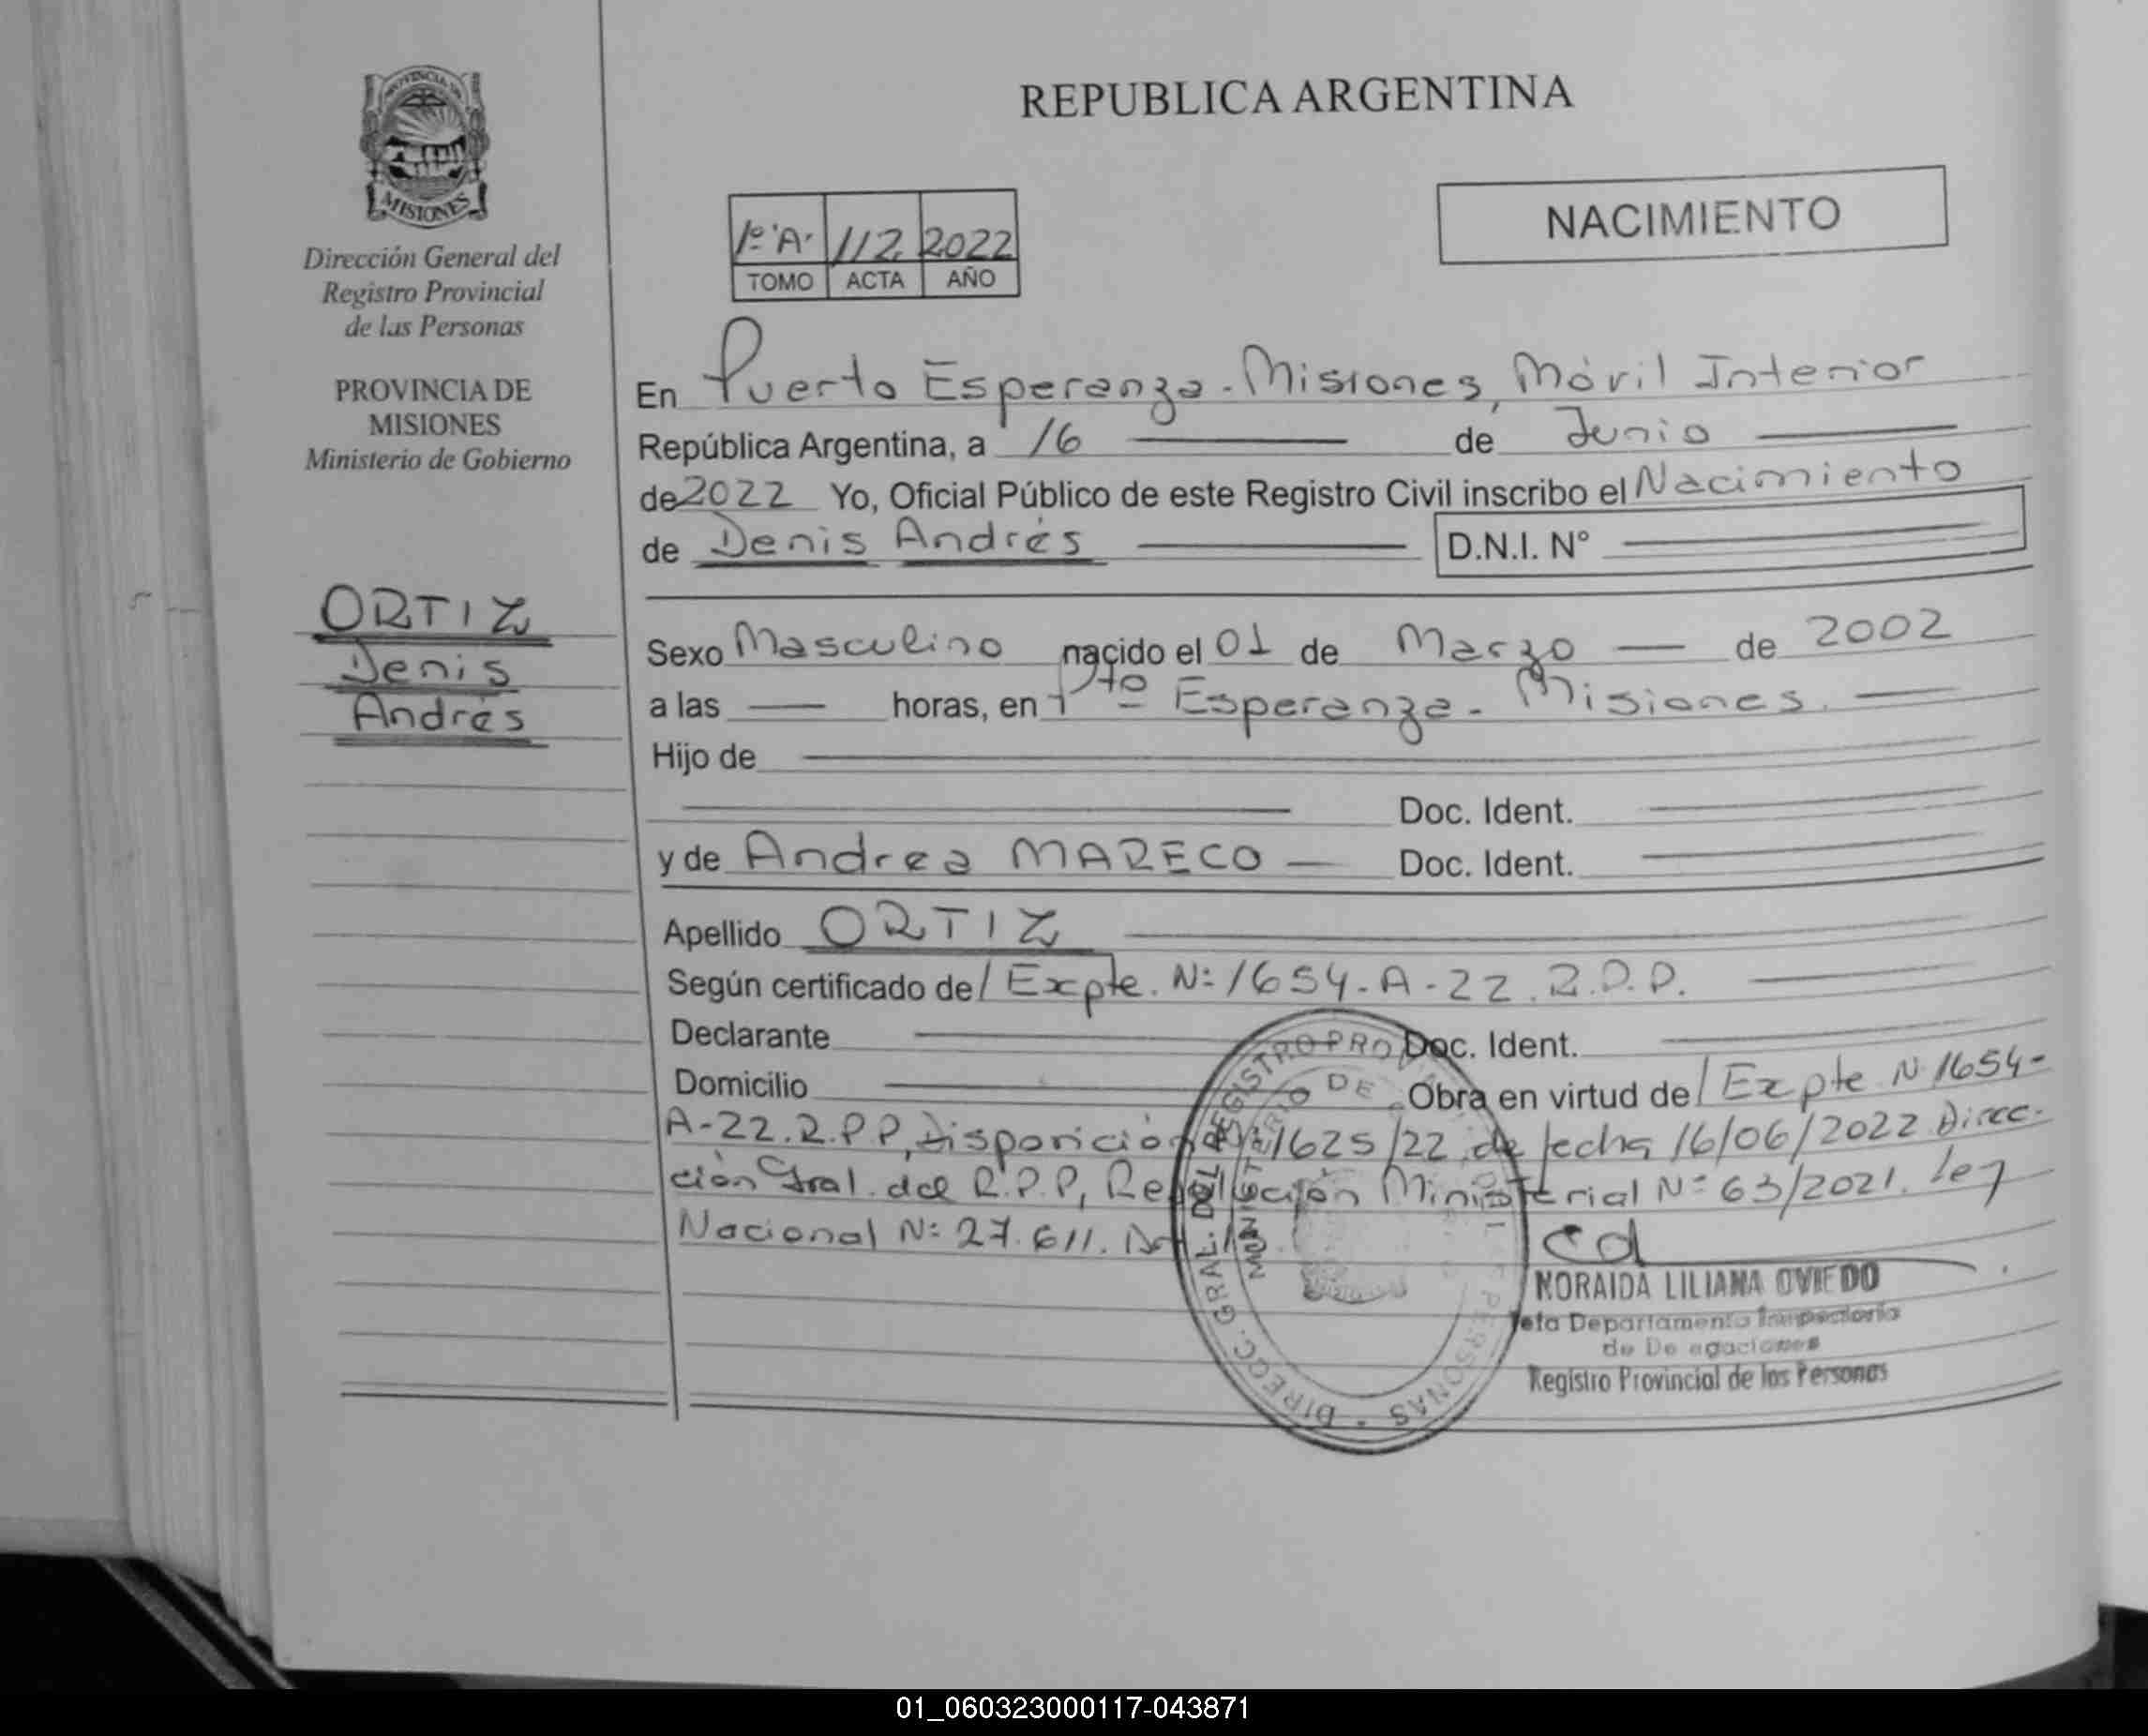 REPUBLICA ARGENTINA
NACIMIENTO
1º "A" 112 2022
TOMO ACTA AÑO
PROVINCIA DE
MISIONES
Dirección General del
Registro Provincial
de las Personas
PROVINCIA DE
MISIONES
Ministerio de Gobierno
ORTIZ
Denis
Andrés
En Puerto Esperanza - Misiones, Móvil Interior
República Argentina, a 16 de Junio
de 2022 Yo, Oficial Público de este Registro Civil inscribo el Nacimiento
de Denis Andrés D.N.I. N°
Sexo Masculino nacido el 01 de Marzo de 2002
a las horas, en Pto Esperanza - Misiones.
Hijo de
Doc. Ident.
y de Andrea MARECO Doc. Ident.
Apellido ORTIZ
Según certificado de / Expte. Nº 1654-A-22. R.P.P.
Declarante Doc. Ident.
Domicilio Obra en virtud de / Expte Nº 1654-
A-22. R.P.P, Disposición Nº 1625/22 de fecha 16/06/2022 Direc-
ción Gral. del R.P.P, Resolución Ministerial Nº 63/2021. Ley
Nacional Nº 27.611.
DIRECC. GRAL. DEL REGISTRO PRO DE PERSONAS
MINISTERIO DE
NORAIDA LILIANA OVIEDO
Jefa Departamento Inspectoría
de Delegaciones
Registro Provincial de las Personas
01_060323000117-043871